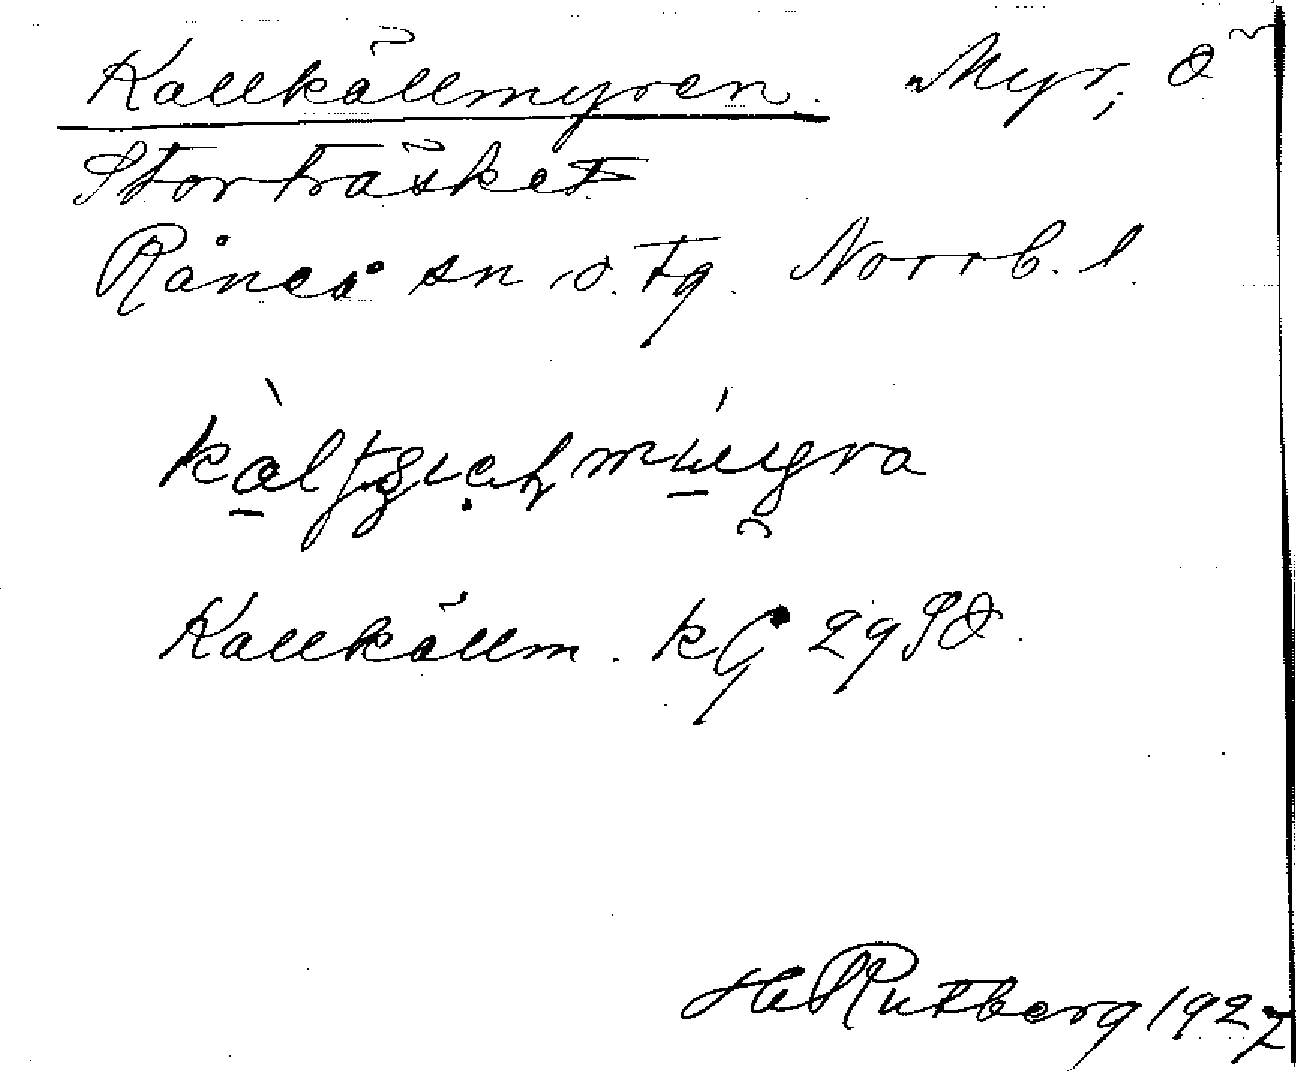 Kallkällmyren. Myr, Ö
Storträsket
Råneå sn o. tg. Norrb. l.
Kallkällm. kG 29 SÖ.
H Rutberg 1927